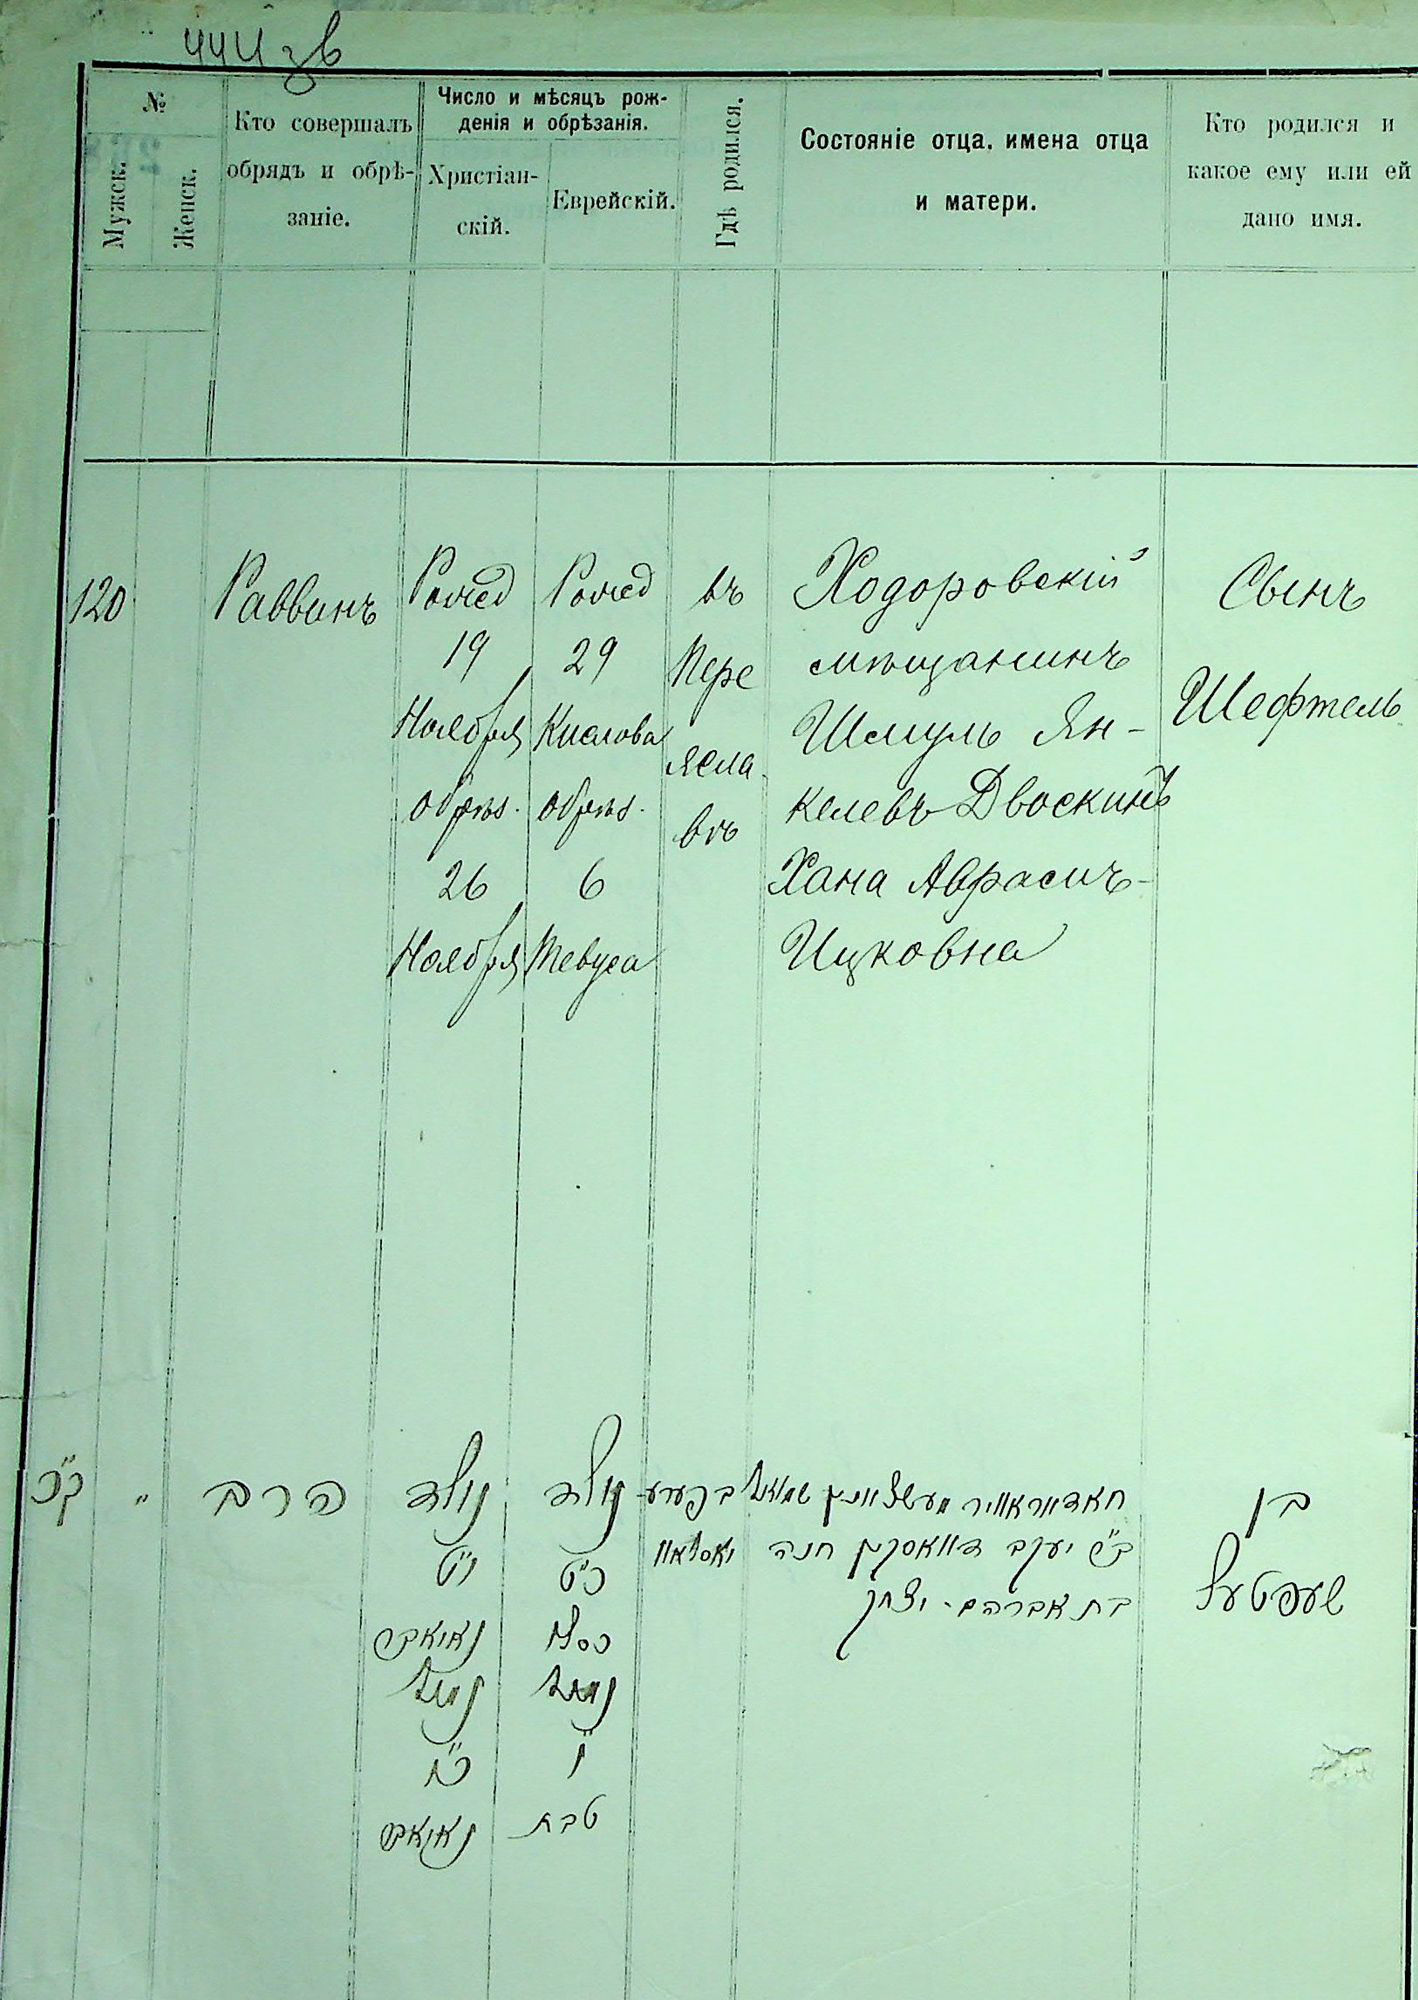 441 зв
№
Мужск.
Женск.
Кто совершалъ
обрядъ и обрѣ-
заніе.
Число и мѣсяцъ рож-
денія и обрѣзанія.
Христіан-
скій.
Еврейскій.
Гдѣ родился.
Состояніе отца, имена отца
и матери.
Кто родился и
какое ему или ей
дано имя.
120
Раввинъ
Рожед
19
Ноября
обрѣз.
26
Ноября
Рожед
29
Кислова
обрѣз.
6
Тевуса
въ
Пере
ясла
вѣ
Ходоровскій
мѣщанинъ
Шмуль Ян-
келевъ Двоскинъ
Хана Аврамъ-
Ицковна
Сынъ
Шефтель
ק"כ
"
הרב
נולד
י"ט
נאיאבר
נמול
כ"ו
נאיאבר
נולד
כ"ט
כסלו
נמול
ו"
טבת
בפערע
יאסלאוו
חאדאראוויר מעשצאנין שמואל
ב"ר יעקב דוואסקין חנה
בת אברהם - יצחק
בן
שעפטעל